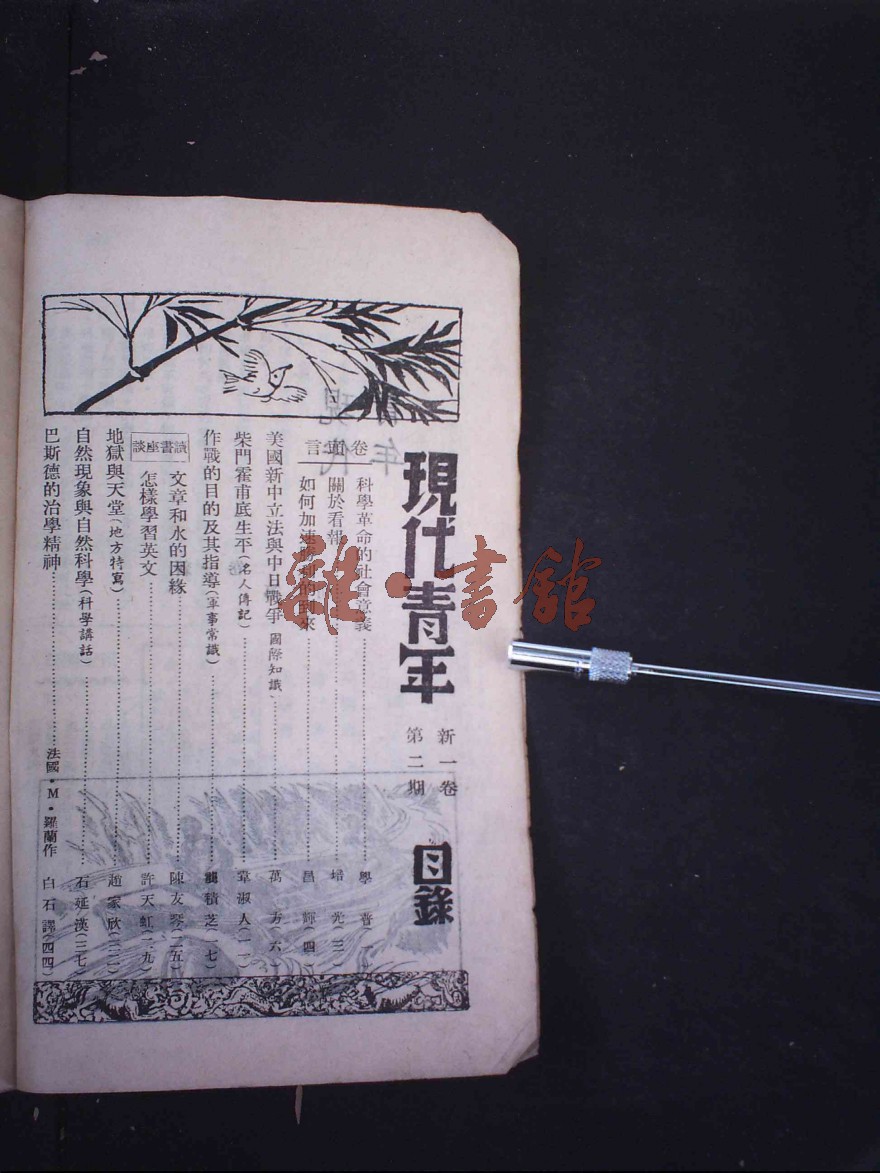 現代青年
新一卷
第二期
目錄
卷頭言
科學革命的社會意義……學普(一)
關於看報……培光(三)
如何加速勝利的到來……昌輝(四)
美國新中立法與中日戰爭 國際知識……萬方(六)
柴門霍甫底生平(名人傳記)……章淑人(一一)
作戰的目的及其指導(軍事常識)……龔積芝(一七)
讀書座談
文章和水的因緣……陳友琴(二五)
怎樣學習英文……許天虹(二九)
地獄與天堂(地方特寫)……趙家欣(三二)
自然現象與自然科學(科學講話)……石延漢(三七)
巴斯德的治學精神……法國·M·羅蘭作 白石譯(四四)
雜·書館